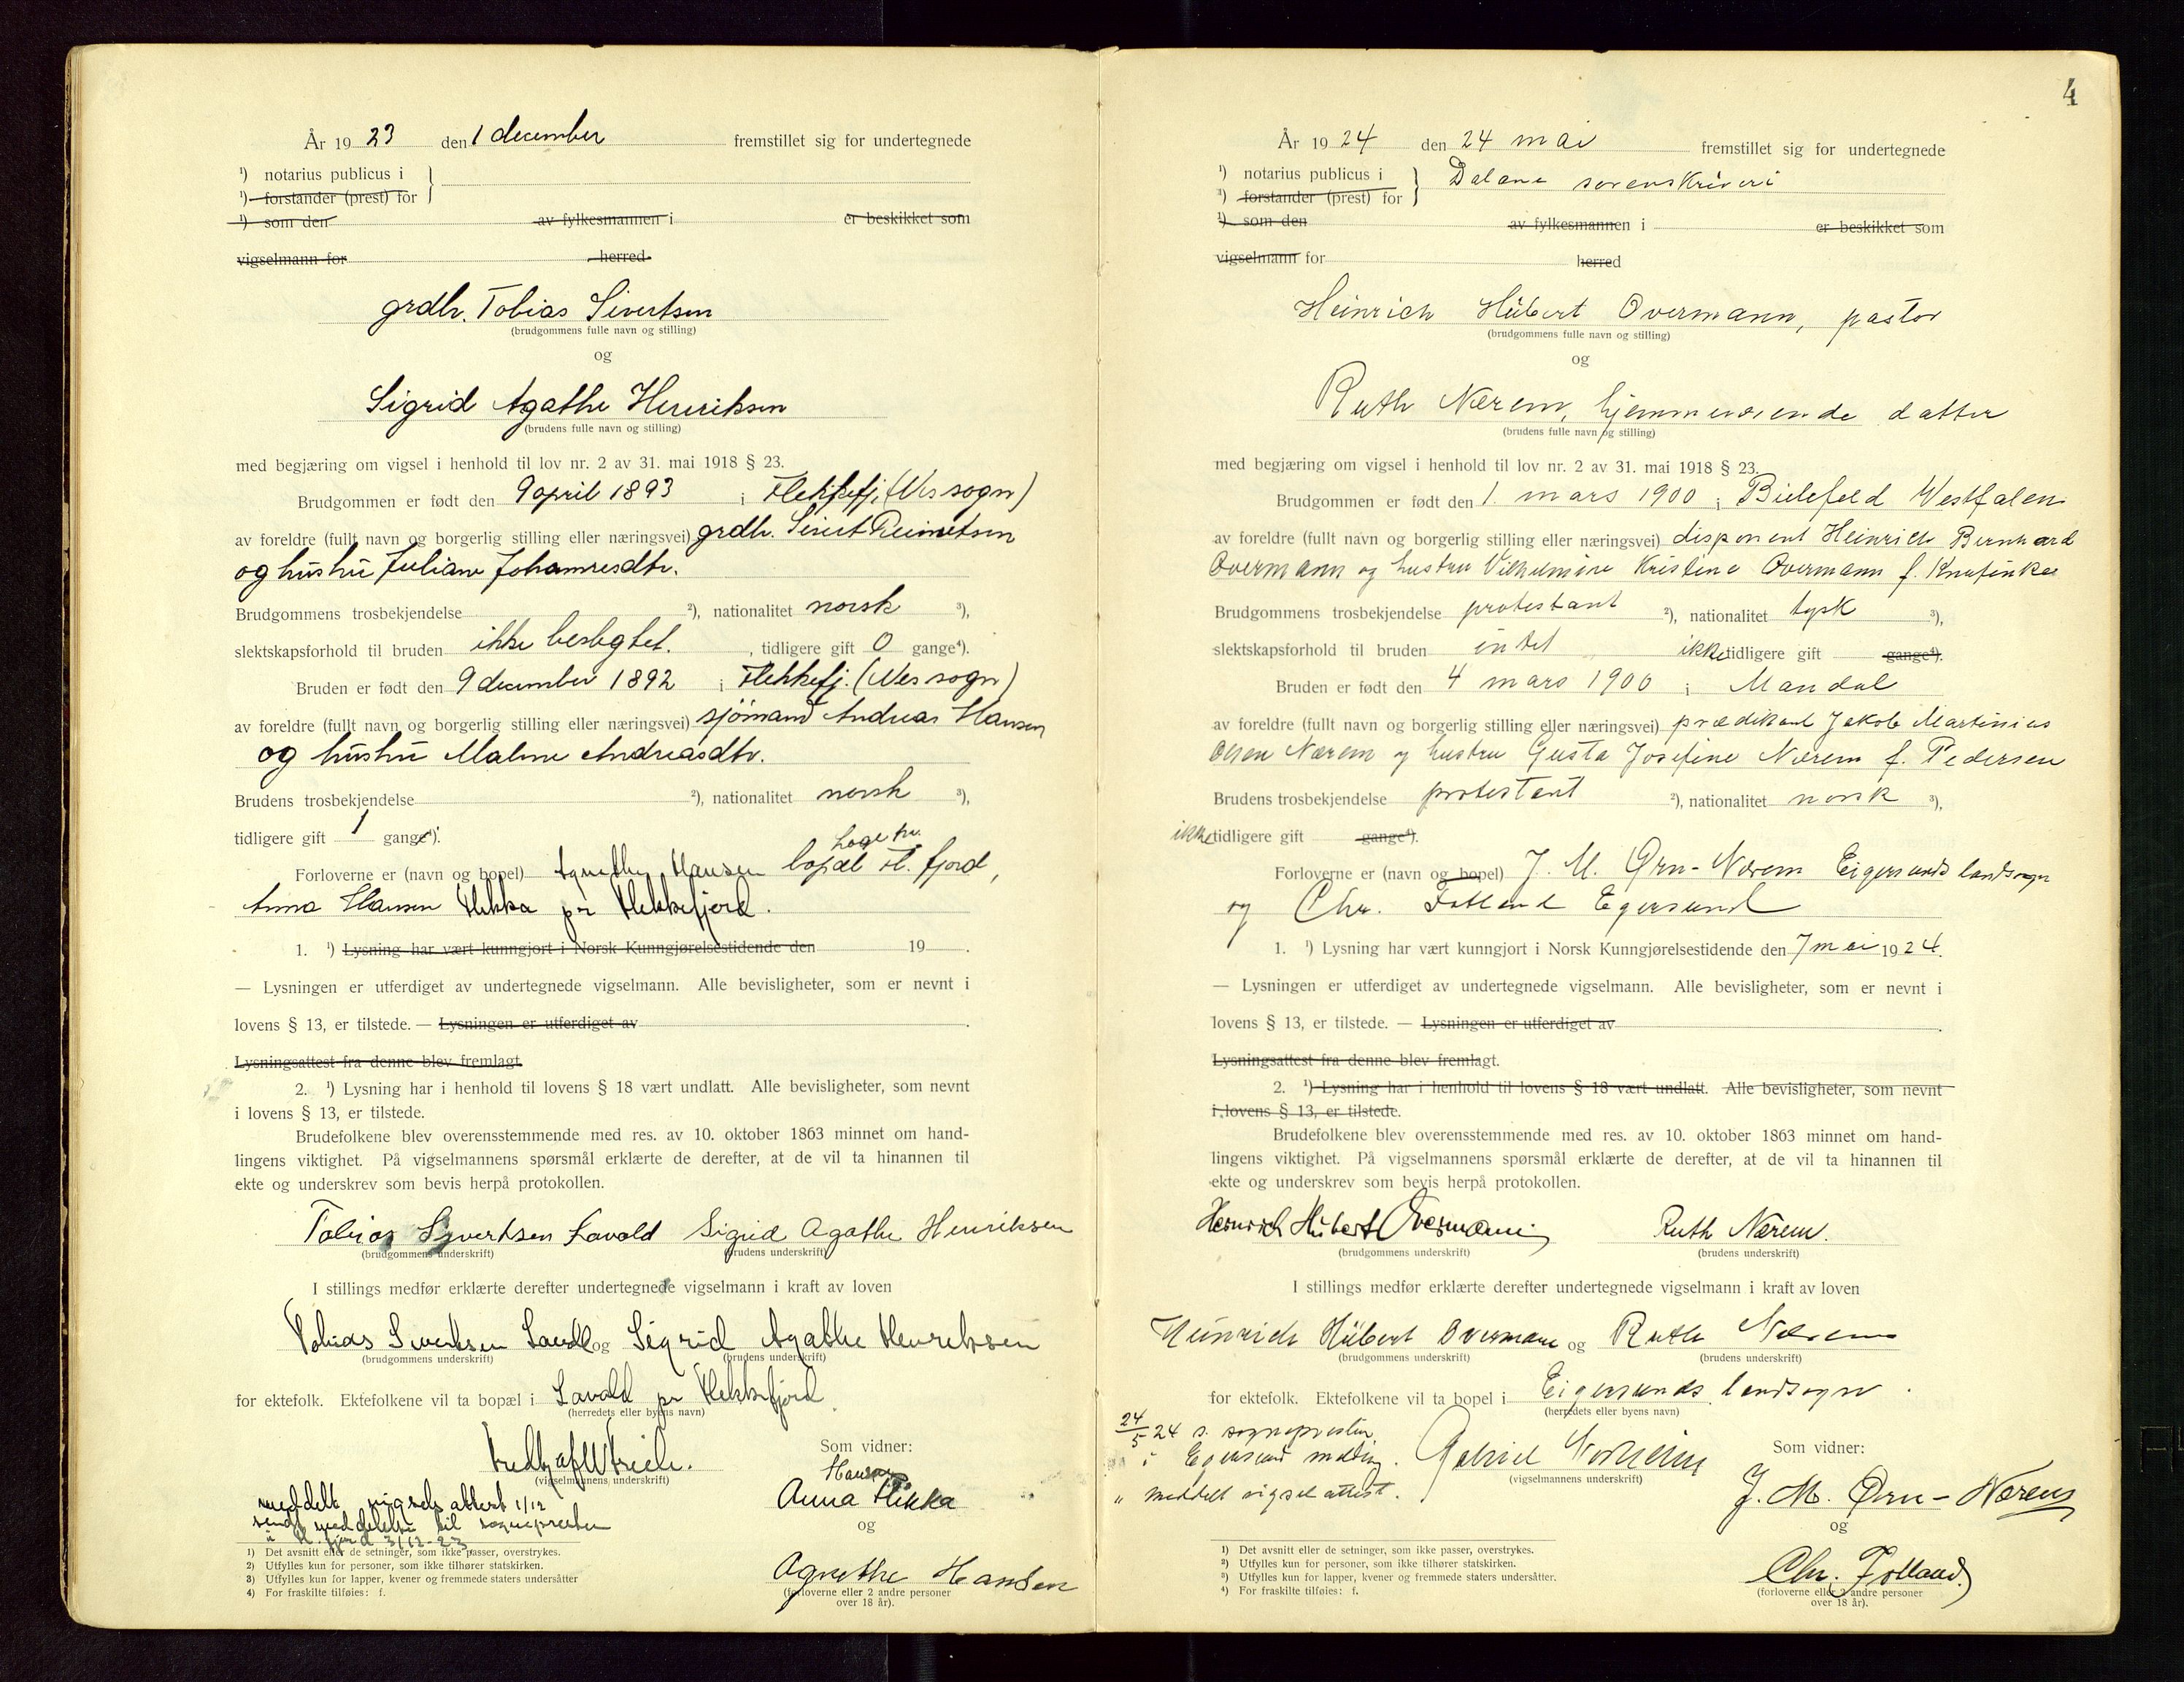 År 1923 den 1 december fremstillet sig for undertegnede
¹) notarius publicus i
¹) forstander (prest) for
¹) som den av fylkesmannen i er beskikket som
vigselmann for herred
grdbr. Tobias Sivertsen
(brudgommens fulle navn og stilling)
og
Sigrid Agathe Henriksen
(brudens fulle navn og stilling)
med begjæring om vigsel i henhold til lov nr. 2 av 31. mai 1918 § 23.
Brudgommen er født den 9 april 1893 i Flekkefj. (Nes sogn)
av foreldre (fullt navn og borgerlig stilling eller næringsvei) grdbr. Sivert Reinertsen
og hustru Juliane Johannesdtr.
Brudgommens trosbekjendelse ²), nationalitet norsk ³),
slektskapsforhold til bruden ikke beslegtet. , tidligere gift 0 gange⁴).
Bruden er født den 9 december 1892 i Flekkefj. (Nes sogn)
av foreldre (fullt navn og borgerlig stilling eller næringsvei) sjømand Andreas Hansen
og hustru Malene Andreasdtr.
Brudens trosbekjendelse ²), nationalitet norsk ³),
tidligere gift 1 gange⁴).
Forloverne er (navn og bopel) Agnethe Hansen bopæl Fl. fjord,
Anna Hansen Flikka pr Flekkefjord.
1. ¹) Lysning har vært kunngjort i Norsk Kunngjørelsestidende den 19 .
— Lysningen er utferdiget av undertegnede vigselmann. Alle bevisligheter, som er nevnt i
lovens § 13, er tilstede. — Lysningen er utferdiget av .
Lysningsattest fra denne blev fremlagt.
2. ¹) Lysning har i henhold til lovens § 18 vært undlatt. Alle bevisligheter, som nevnt
i lovens § 13, er tilstede.
Brudefolkene blev overensstemmende med res. av 10. oktober 1863 minnet om hand-
lingens viktighet. På vigselmannens spørsmål erklærte de derefter, at de vil ta hinannen til
ekte og underskrev som bevis herpå protokollen.
Tobias Syvertsen Lavold Sigrid Agathe Henriksen
(brudgommens underskrift) (brudens underskrift)
I stillings medfør erklærte derefter undertegnede vigselmann i kraft av loven
Tobias Sivertsen Lavold og Sigrid Agathe Henriksen
(brudgommens underskrift) (brudens underskrift)
for ektefolk. Ektefolkene vil ta bopæl i Lavold pr Flekkefjord
(herredets eller byens navn)
(vigselmannens underskrift)
Som vidner:
Hansen
Anna Flikka
og
Agnethe Hansen
(forloverne eller 2 andre personer
over 18 år).
meddelt vigselsattest 1/12
sendt meddelelse til sognepresten
i Fl. fjord 3/12-23
1) Det avsnitt eller de setninger, som ikke passer, overstrykes.
2) Utfylles kun for personer, som ikke tilhører statskirken.
3) Utfylles kun for lapper, kvener og fremmede staters undersåtter
4) For fraskilte tilføies: f.
4
År 1924 den 24 mai fremstillet sig for undertegnede
¹) notarius publicus i
¹) forstander (prest) for
Dalane sorenskriveri
¹) som den av fylkesmannen i er beskikket som
vigselmann for herred
Heinrich Hübert Overmann, pastor
(brudgommens fulle navn og stilling)
og
Ruth Nærem, hjemmeværende datter
(brudens fulle navn og stilling)
med begjæring om vigsel i henhold til lov nr. 2 av 31. mai 1918 § 23.
Brudgommen er født den 1. mars 1900 i Bielefeld Westfalen
av foreldre (fullt navn og borgerlig stilling eller næringsvei) disponent Heinrich Bernhard
Overmann og hustru Vilhelmine Kristine Overmann f. Knufinke
Brudgommens trosbekjendelse protestant ²), nationalitet tysk ³),
slektskapsforhold til bruden intet ikke tidligere gift gange⁴).
Bruden er født den 4 mars 1900 i Mandal
av foreldre (fullt navn og borgerlig stilling eller næringsvei) prædikant Jakob Martinius
Olsen Nærem og hustru Gusta Josefine Nærem f. Pedersen
Brudens trosbekjendelse protestant ²), nationalitet norsk ³),
ikke tidligere gift gange⁴).
Forloverne er (navn og bopel) J. M. Ørn-Nærem Eigersunds landsogn
og Chr. Fotland Egersund
1. ¹) Lysning har vært kunngjort i Norsk Kunngjørelsestidende den 7 mai 1924.
— Lysningen er utferdiget av undertegnede vigselmann. Alle bevisligheter, som er nevnt i
lovens § 13, er tilstede. — Lysningen er utferdiget av .
Lysningsattest fra denne blev fremlagt.
2. ¹) Lysning har i henhold til lovens § 18 vært undlatt. Alle bevisligheter, som nevnt
i lovens § 13, er tilstede.
Brudefolkene blev overensstemmende med res. av 10. oktober 1863 minnet om hand-
lingens viktighet. På vigselmannens spørsmål erklærte de derefter, at de vil ta hinannen til
ekte og underskrev som bevis herpå protokollen.
Heinrich Hübert Overmann Ruth Nærem.
(brudgommens underskrift) (brudens underskrift)
I stillings medfør erklærte derefter undertegnede vigselmann i kraft av loven
Heinrich Hübert Overmann og Ruth Nærem
(brudgommens underskrift) (brudens underskrift)
for ektefolk. Ektefolkene vil ta bopel i Eigersunds landsogn .
(herredets eller byens navn)
24/5 24 s. sognepresten
i Egersund melding.
" meddelt vigselattest.
Gabriel
(vigselmannens underskrift)
Som vidner:
J. M. Ørn-Nærem
og
Chr. Fotland
(forloverne eller 2 andre personer
over 18 år).
¹) Det avsnitt eller de setninger, som ikke passer, overstrykes.
²) Utfylles kun for personer, som ikke tilhører statskirken.
³) Utfylles kun for lapper, kvener og fremmede staters undersåtter.
⁴) For fraskilte tilføies: f.